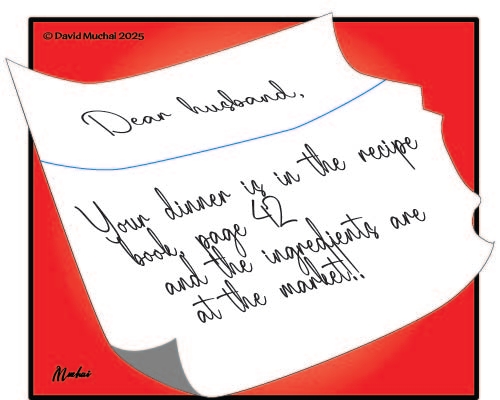 © David Muchai 2025
Dear husband,
Your dinner is in the recipe
book, page 42
and the ingredients are
at the market!!
Muchai